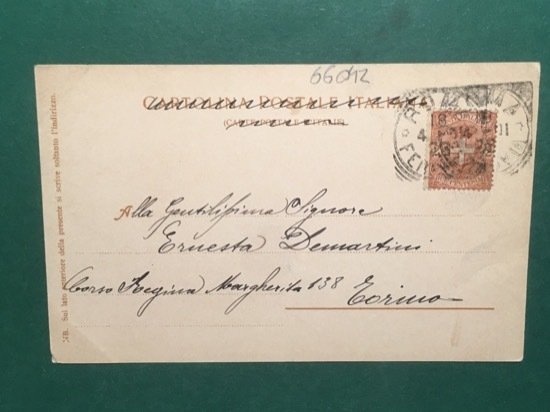 66042
CARTOLINA POSTALE ITALIANA
(CARTE POSTALE D'ITALIE)
ROMA
Alla Gentilissima Signore
Ernesta Demartini
Corso Regina Margherita 138 Torino
NB. Sul lato anteriore della presente si scrive soltanto l'indirizzo.